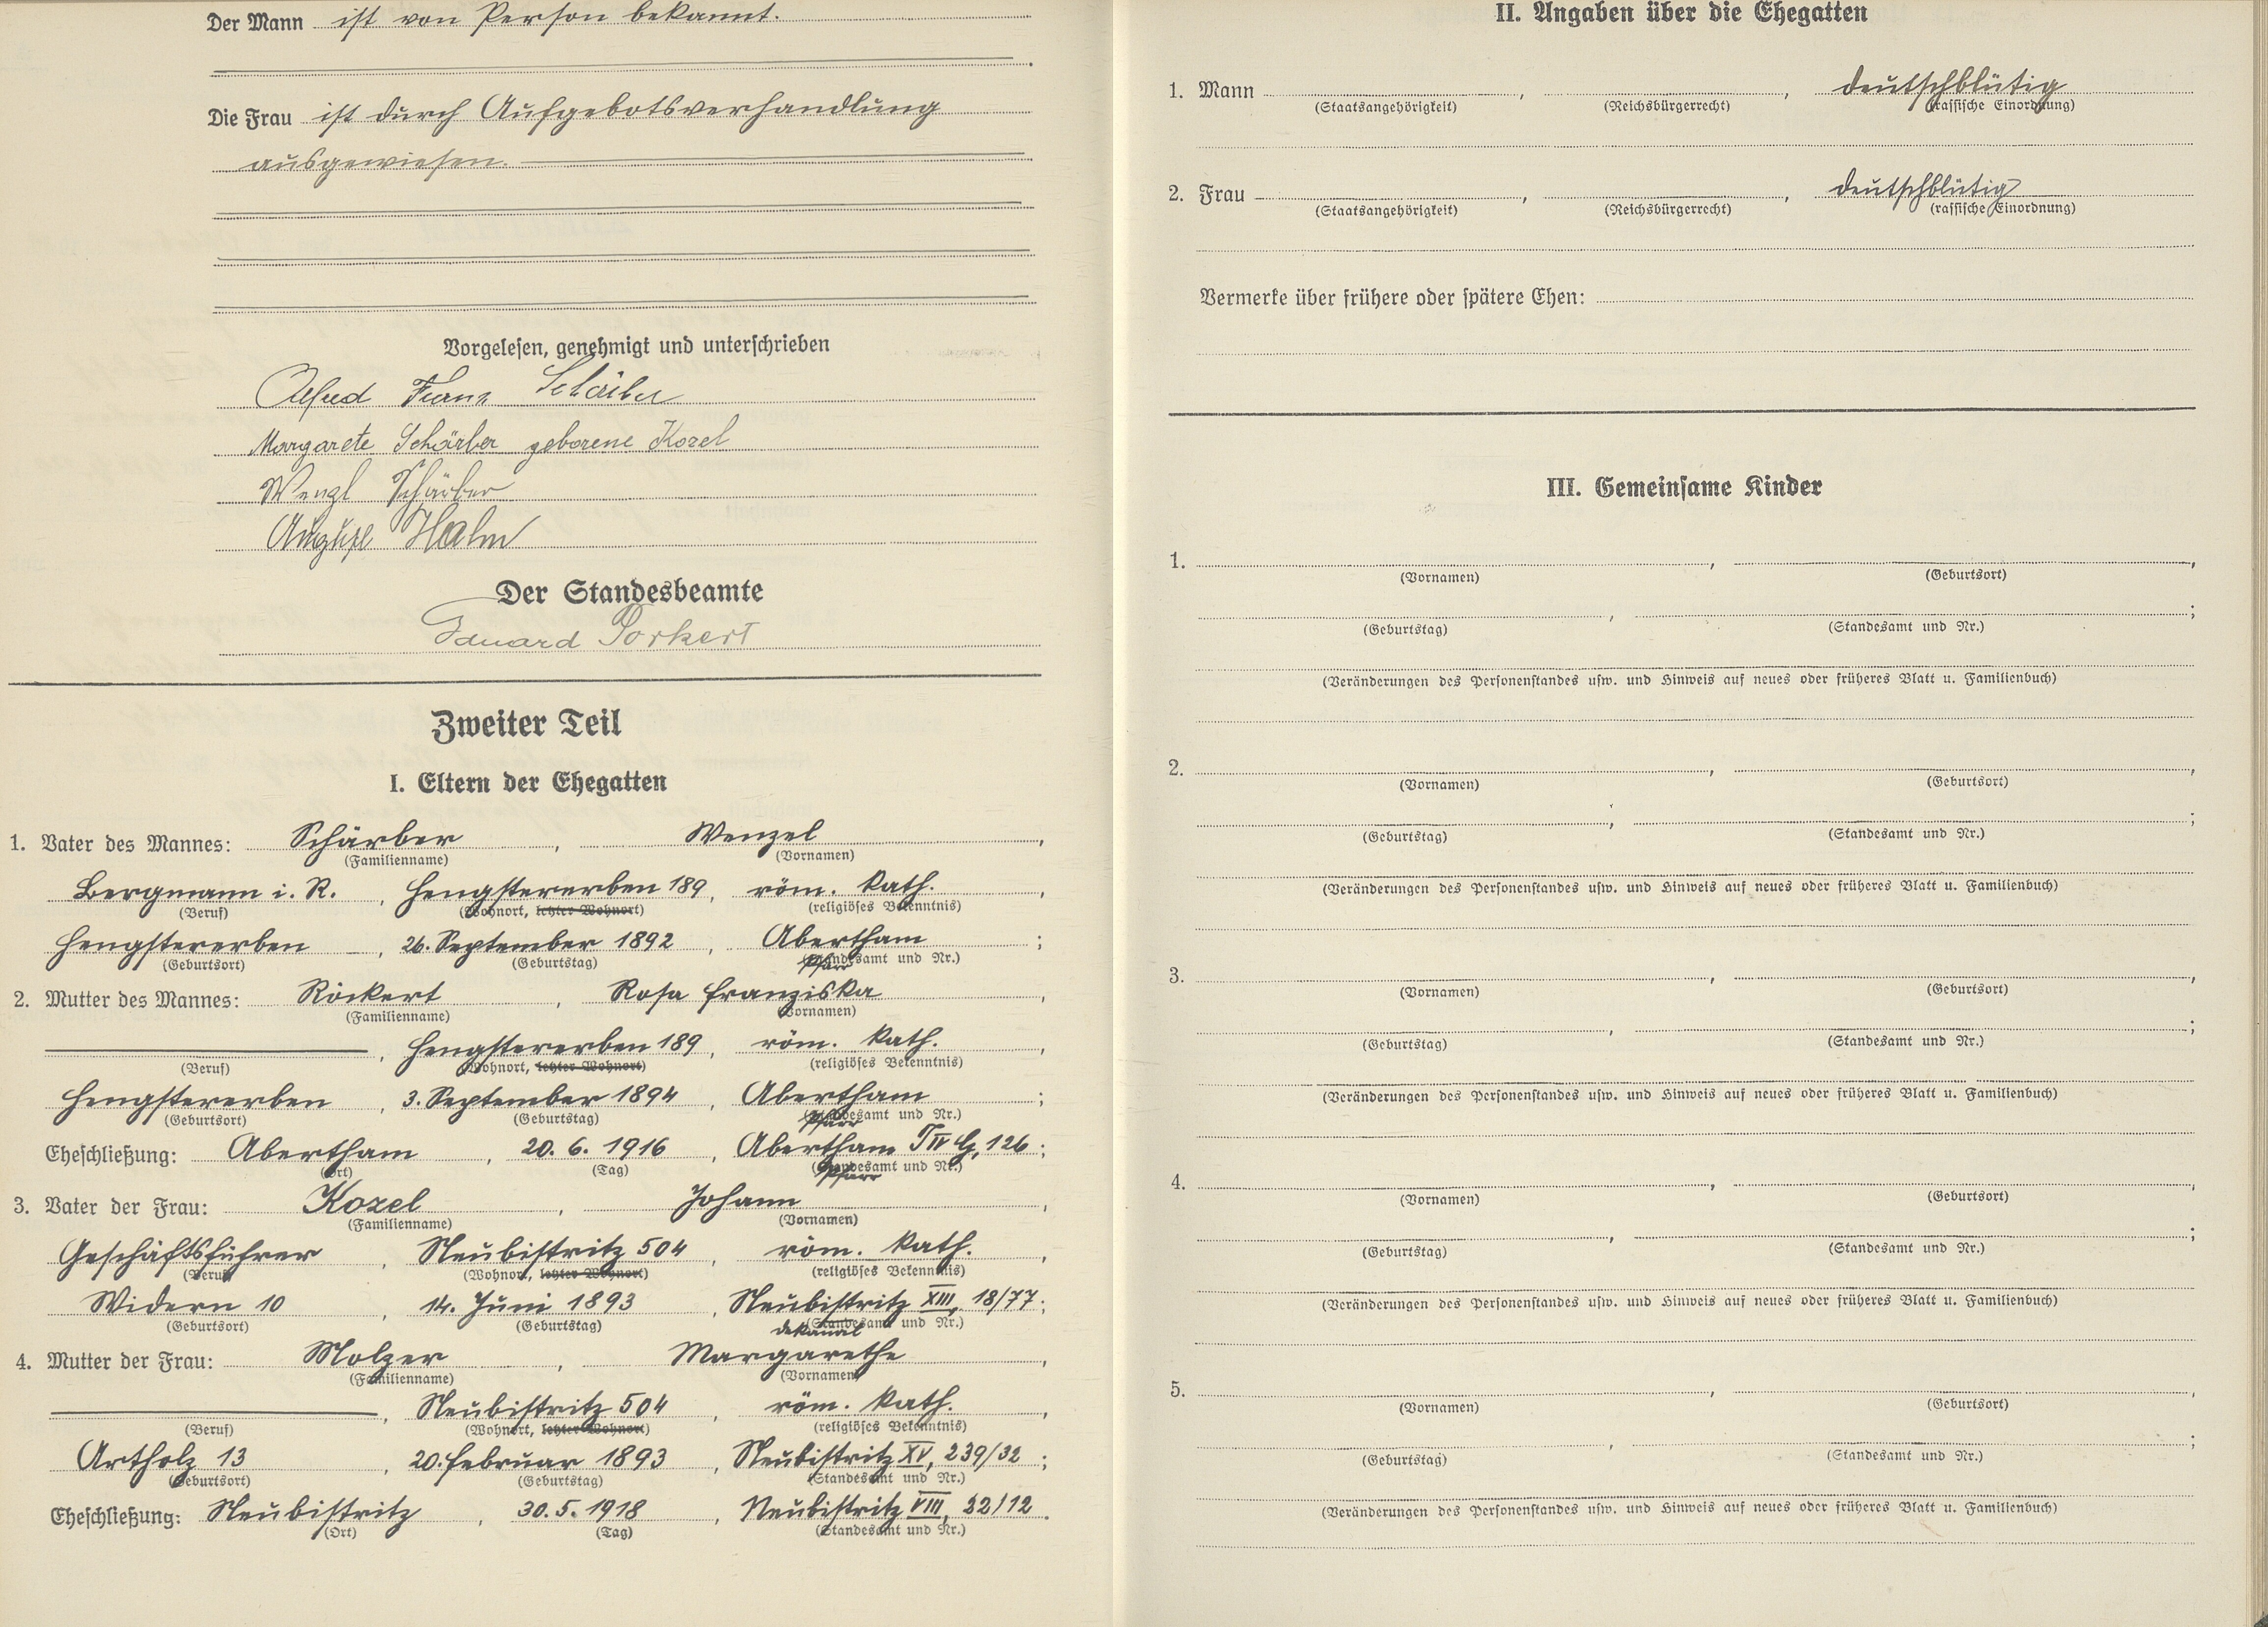 Der Mann ist von Person bekannt.
Die Frau ist durch Aufgebotsverhandlung
ausgewiesen.
Vorgelesen, genehmigt und unterschrieben
Alfred Franz Schärber
Margarete Schärber geborene Kozel
Wenzl Schärber
August Hahn
Der Standesbeamte
Eduard Porkert
Zweiter Teil
I. Eltern der Ehegatten
1. Vater des Mannes: Schärber, Wenzel,
(Familienname) (Vornamen)
Bergmann i. R., Hengstererben 189, röm. kath.,
(Beruf) (Wohnort, letzter Wohnort) (religiöses Bekenntnis)
Hengstererben, 26. September 1892, Abertham;
(Geburtsort) (Geburtstag) (Standesamt und Nr.)
Pfarr
2. Mutter des Mannes: Röckert, Rosa Franziska,
(Familienname) (Vornamen)
, Hengstererben 189, röm. kath.,
(Beruf) (Wohnort, letzter Wohnort) (religiöses Bekenntnis)
Hengstererben, 3. September 1894, Abertham;
(Geburtsort) (Geburtstag) (Standesamt und Nr.)
Pfarr
Eheschließung: Abertham, 20. 6. 1916, Abertham T IV G, 126;
(Ort) (Tag) (Standesamt und Nr.)
Pfarr
3. Vater der Frau: Kozel, Johann,
(Familienname) (Vornamen)
Geschäftsführer, Neubistritz 504, röm. kath.,
(Beruf) (Wohnort, letzter Wohnort) (religiöses Bekenntnis)
Widern 10, 14. Juni 1893, Neubistritz XIII, 18/77;
(Geburtsort) (Geburtstag) (Standesamt und Nr.)
Dekanal
4. Mutter der Frau: Molzer, Margarethe,
(Familienname) (Vornamen)
, Neubistritz 504, röm. kath.,
(Beruf) (Wohnort, letzter Wohnort) (religiöses Bekenntnis)
Artholz 13, 20. Februar 1893, Neubistritz XV, 239/32;
(Geburtsort) (Geburtstag) (Standesamt und Nr.)
Eheschließung: Neubistritz, 30. 5. 1918, Neubistritz VIII, 22/12.
(Ort) (Tag) (Standesamt und Nr.)
II. Angaben über die Ehegatten
1. Mann , , deutschblütig
(Staatsangehörigkeit) (Reichsbürgerrecht) (rassische Einordnung)
2. Frau , , deutschblütig
(Staatsangehörigkeit) (Reichsbürgerrecht) (rassische Einordnung)
Vermerke über frühere oder spätere Ehen:
III. Gemeinsame Kinder
1. , ,
(Vornamen) (Geburtsort)
, ;
(Geburtstag) (Standesamt und Nr.)
(Veränderungen des Personenstandes usw. und Hinweis auf neues oder früheres Blatt u. Familienbuch)
2. , ,
(Vornamen) (Geburtsort)
, ;
(Geburtstag) (Standesamt und Nr.)
(Veränderungen des Personenstandes usw. und Hinweis auf neues oder früheres Blatt u. Familienbuch)
3. , ,
(Vornamen) (Geburtsort)
, ;
(Geburtstag) (Standesamt und Nr.)
(Veränderungen des Personenstandes usw. und Hinweis auf neues oder früheres Blatt u. Familienbuch)
4. , ,
(Vornamen) (Geburtsort)
, ;
(Geburtstag) (Standesamt und Nr.)
(Veränderungen des Personenstandes usw. und Hinweis auf neues oder früheres Blatt u. Familienbuch)
5. , ,
(Vornamen) (Geburtsort)
, ;
(Geburtstag) (Standesamt und Nr.)
(Veränderungen des Personenstandes usw. und Hinweis auf neues oder früheres Blatt u. Familienbuch)